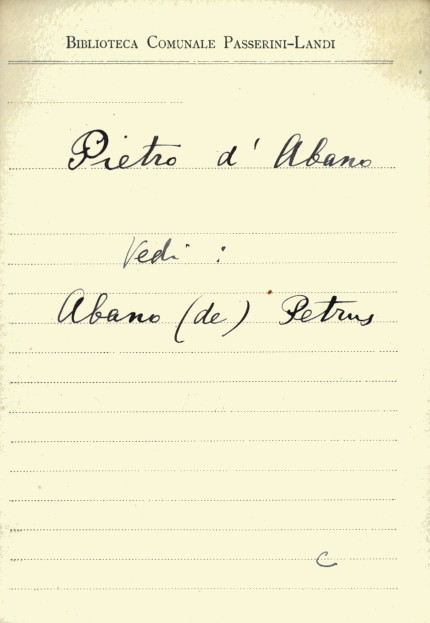 Biblioteca Comunale Passerini-Landi
Pietro d' Abano
Vedi :
Abano (de) Petrus
C